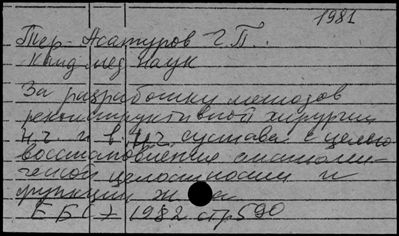 1981
Тер-Асатуров Г.П.
Канд. мед. наук
За разработку методов
реконструктивной хирургии
н.ч. и в.ч. сустава с целью
восстановления анатоми-
ческой целостности и
функции ж
Е БСЭ 1982 стр 590